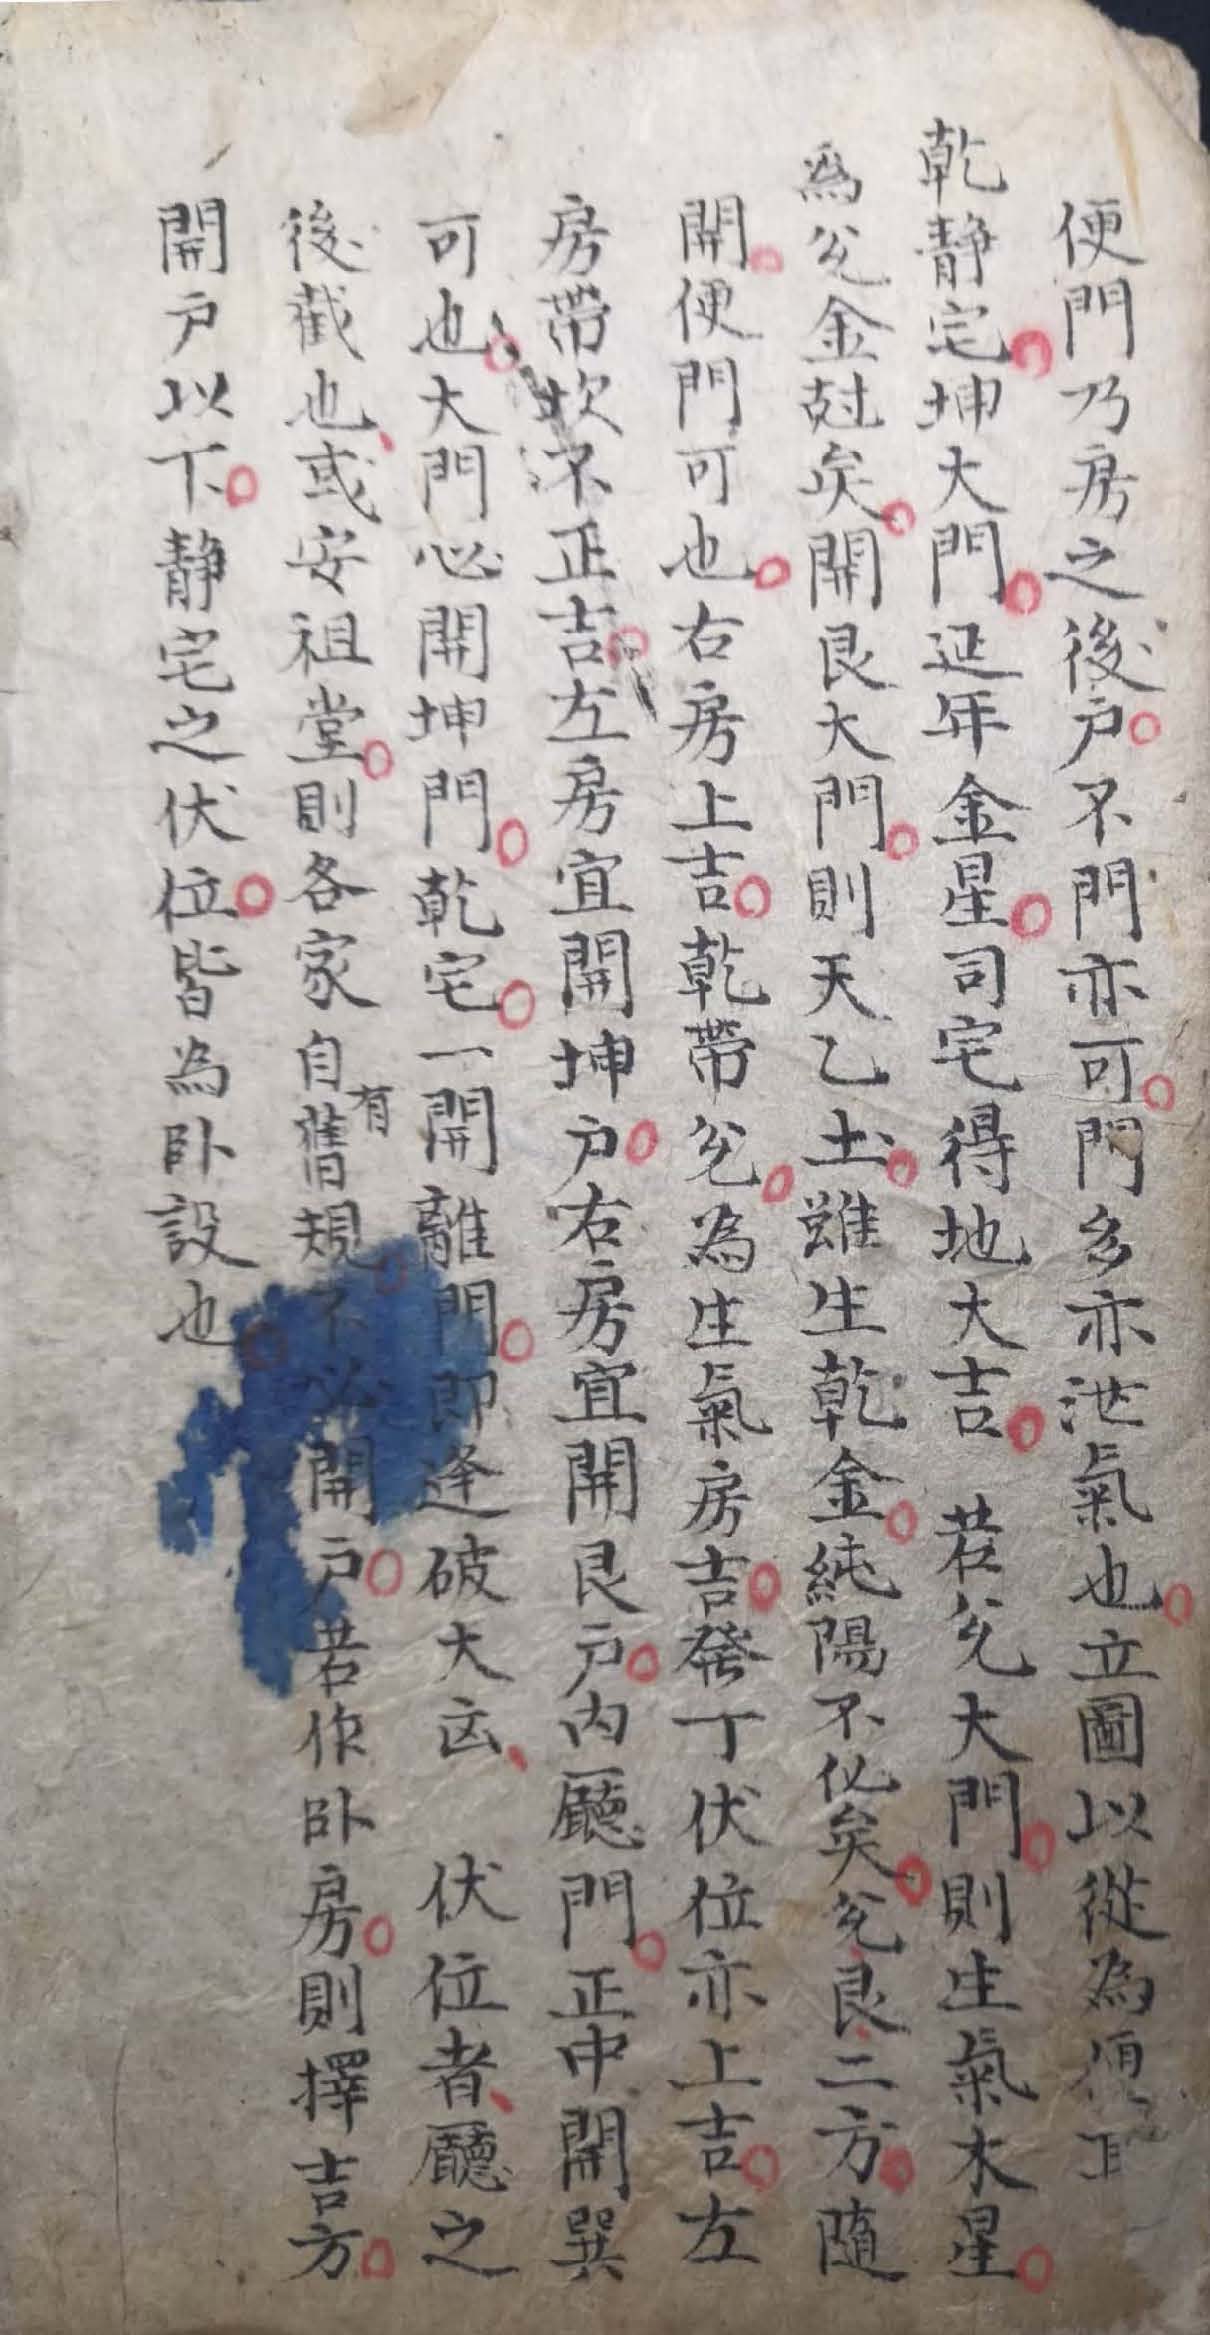 便門乃房之後户不門亦可門多亦泄氣也立圖以從為便
乾静宅坤大門延年金星司宅得地大吉 若兊大門則生氣木星
為兊金尅矣開艮大門則天乙土雖生乾金純陽不化矣兊艮二方隨
開便門可也右房上吉乾帶兊為生氣房吉發丁伏位亦上吉左
房帶坎不正吉左房宜開坤户右房宜開艮户内廳門正中開巽
可也大門必開坤門乾宅一開離門即逢破大凶 伏位者廳之
後截也或安祖堂則各家自有舊規不必開户若作卧房則擇吉方
開户以下静宅之伏位皆為卧設也